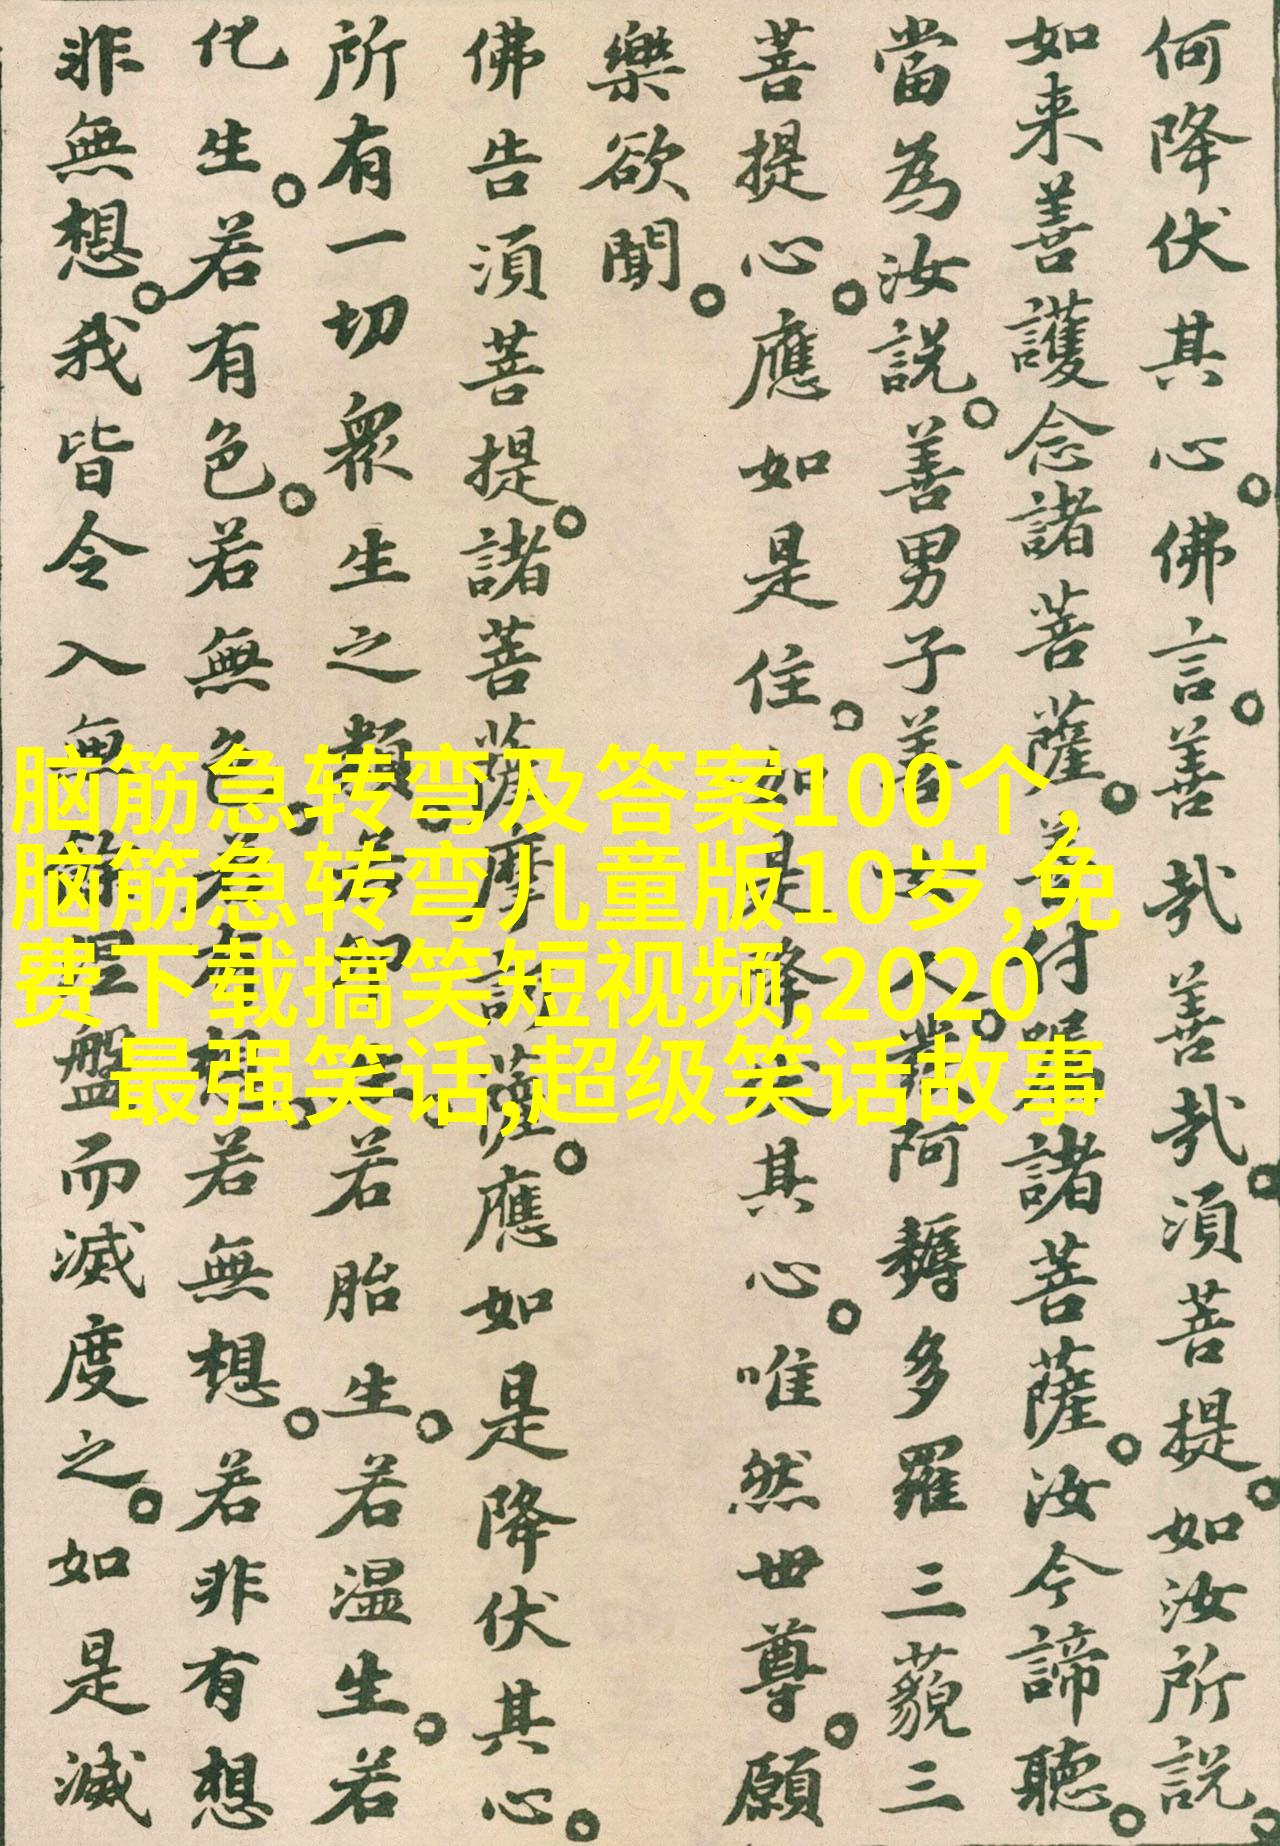 何降伏其心佛言善哉善哉須菩提如汝所説
如来善護念諸菩薩善付囑諸菩薩汝今諦聽
當為汝説善男子善女人發阿耨多羅三藐三
菩提心應如是住如是降伏其心唯然世尊願
樂欲聞
佛告須菩提諸菩薩摩訶薩應如是降伏其心
所有一切衆生之類若卵生若胎生若温生若
化生若有色若無色若有想若無想若非有想
非無想我皆令入無餘涅盤而滅度之如是滅
脑筋急转弯及答案100个,
脑筋急转弯儿童版10岁,免
费下载搞笑短视频,2020
最强笑话,超级笑话故事